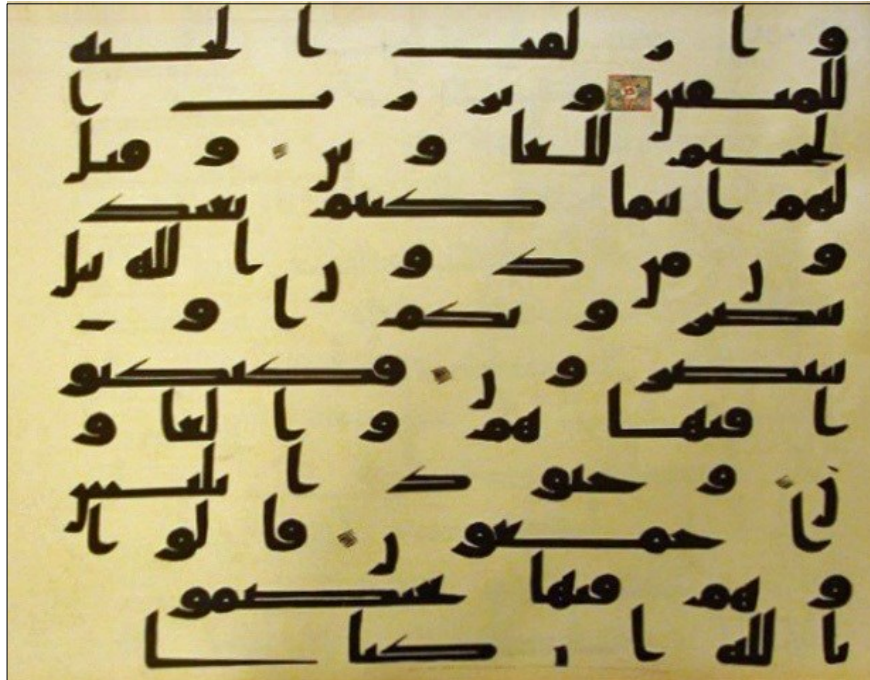 وازلفت الجنه
للمتقين وبرزت ا
لجحيم للغاوين وقيل
لهم اينما كنتم تعبد
ون من دون الله هل
ينصرونكم او
ينتصرون فكبكبو
ا فيها هم والغاو
ن وجنود ابليس
اجمعون قالوا
وهم فيها يختصمو
تالله ان كنا